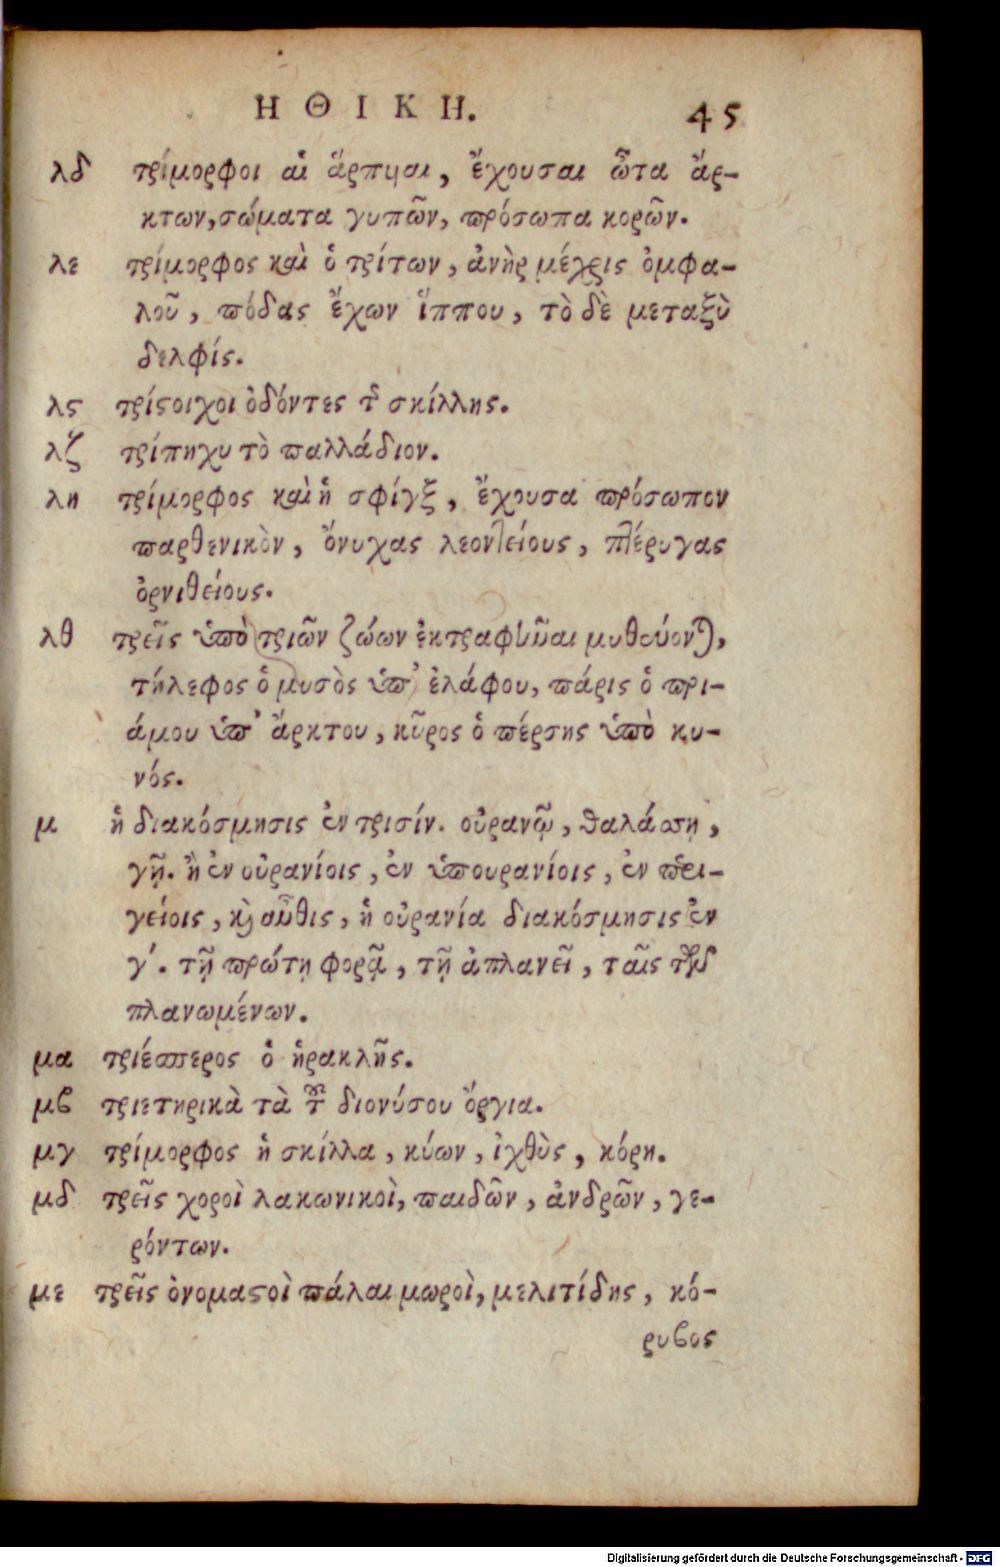 ΗΘΙΚΗ. 45
λδ τρίμορφοι αἱ ἅρπυιαι, ἔχουσαι ὦτα ἄρ-
κτων, σώματα γυπῶν, πρόσωπα κορῶν.
λε τρίμορφος καὶ ὁ τρίτων, ἀνὴρ μέχρις ὀμφα-
λοῦ, πόδας ἔχων ἵππου, τὸ δὲ μεταξὺ
δελφίς.
λϛ τρίϛοιχοι ὀδόντες τῆς σκίλλης.
λζ τρίπηχυ τὸ παλλάδιον.
λη τρίμορφος καὶ ἡ σφίγξ, ἔχουσα πρόσωπον
παρθενικὸν, ὄνυχας λεοντείους, πτέρυγας
ὀρνιθείους.
λθ τρεῖς ὑπὸ τριῶν ζώων ἐκτραφῆναι μυθεύονται,
τήλεφος ὁ μυσὸς ὑπ' ἐλάφου, πάρις ὁ πρι-
άμου ὑπ' ἄρκτου, κῦρος ὁ πέρσης ὑπὸ κυ-
νός.
μ ἡ διακόσμησις ἐν τρισίν. οὐρανῷ, θαλάσσῃ,
γῇ. ἢ ἐν οὐρανίοις, ἐν ὑπουρανίοις, ἐν περι-
γείοις, καὶ αὖθις, ἡ οὐρανία διακόσμησις ἐν
γʹ. τῇ πρώτῃ φορᾷ, τῇ ἀπλανεῖ, ταῖς τῶν
πλανωμένων.
μα τριέσπερος ὁ ἡρακλῆς.
μβ τριετηρικὰ τὰ τοῦ διονύσου ὄργια.
μγ τρίμορφος ἡ σκίλλα, κύων, ἰχθὺς, κόρη.
μδ τρεῖς χοροὶ λακωνικοὶ, παιδῶν, ἀνδρῶν, γε-
ρόντων.
με τρεῖς ὀνομαϛοὶ πάλαι μωροὶ, μελιτίδης, κό-
ρυβος
Digitalisierung gefördert durch die Deutsche Forschungsgemeinschaft - DFG